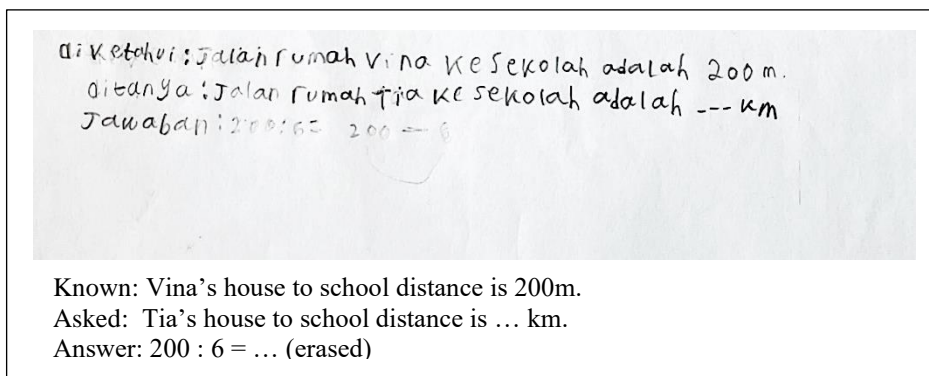 diketahui : Jalan rumah vina ke sekolah adalah 200 m.
ditanya : Jalan rumah Tia ke sekolah adalah --- km
Jawaban : 200 : 6 = 200 - 6
Known: Vina’s house to school distance is 200m.
Asked: Tia’s house to school distance is … km.
Answer: 200 : 6 = … (erased)